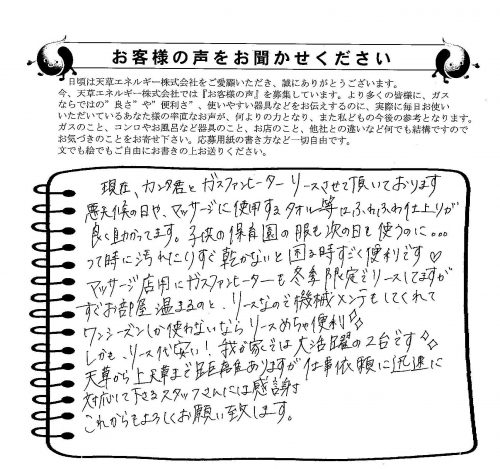 お客様の声をお聞かせください
日頃は天草エネルギー株式会社をご愛顧いただき、誠にありがとうございます。
今、天草エネルギー株式会社では『お客様の声』を募集しています。より多くの皆様に、ガス
ならではの”良さ”や”便利さ”、使いやすい器具などをお伝えするのに、実際に毎日お使い
いただいているあなた様の率直なお声が、何よりの力となり、また私どもの今後の参考となります。
ガスのこと、コンロやお風呂など器具のこと、お店のこと、他社との違いなど何でも結構ですので
お気づきのことをお寄せ下さい。応募用紙の書き方など一切自由です。
文でも絵でもご自由にお書きの上お送りください。
現在、カンタ君とガスファンヒーターリースさせて頂いております
悪天候の日や、マッサージに使用するタオル等はふわふわ仕上りが
良く助かってます。子供の保育園の服も次の日も使うのに…
って時に汚れたりすぐ乾かないと困る時すごく便利です♡
マッサージ店用にガスファンヒーターも冬季限定でリースしてますが
すぐお部屋温まるのと、リースなので機械メンテもしてくれて
ワンシーズンしか使わないならリースめちゃ便利
しかも、リース代安い！我が家では大活躍の2台です
天草から上天草まで距離ありますが仕事依頼に迅速に
対応して下さるスタッフさんには感謝
これからもよろしくお願い致します。